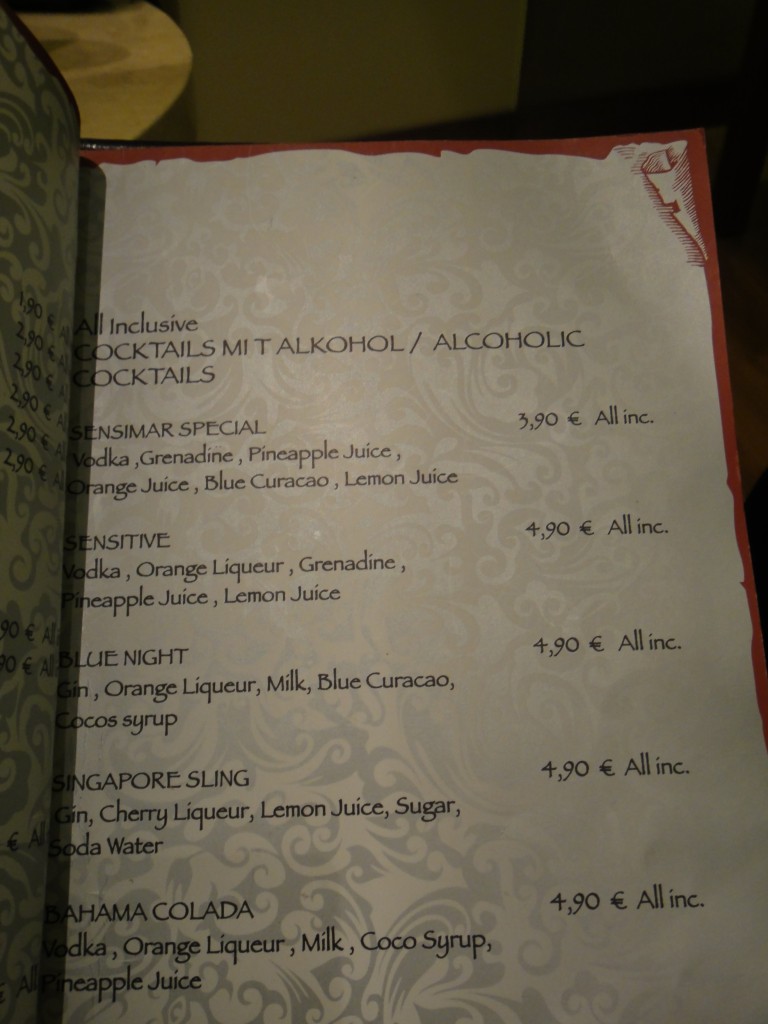 All Inclusive
COCKTAILS MI T ALKOHOL / ALCOHOLIC
COCKTAILS
SENSIMAR SPECIAL 3,90 € All inc.
Vodka ,Grenadine , Pineapple Juice ,
Orange Juice , Blue Curacao , Lemon Juice
SENSITIVE 4,90 € All inc.
Vodka , Orange Liqueur , Grenadine ,
Pineapple Juice , Lemon Juice
BLUE NIGHT 4,90 € All inc.
Gin , Orange Liqueur, Milk, Blue Curacao,
Cocos syrup
SINGAPORE SLING 4,90 € All inc.
Gin, Cherry Liqueur, Lemon Juice, Sugar,
Soda Water
BAHAMA COLADA 4,90 € All inc.
Vodka , Orange Liqueur , Milk , Coco Syrup,
Pineapple Juice
1,90 €
2,90 €
2,90 €
2,90 €
2,90 €
2,90 €
90 € All
90 € All
€ All
All